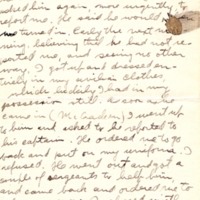 asked him again, more urgently to
report me. He said he would
turned in. Early the next mor
ning, believing that he had not re
ported me and seeing no other
way. I got up and dressed en
tirely in my civilian clothes,
which luckily I had in my
possession still. As soon as he
came in (McFadden) I went up
to him and asked to be reported to
his captain. He ordered me to go
back and put on my uniform. I
refused. He went out and got a
couple of sergeants to help him
and came back and ordered me to